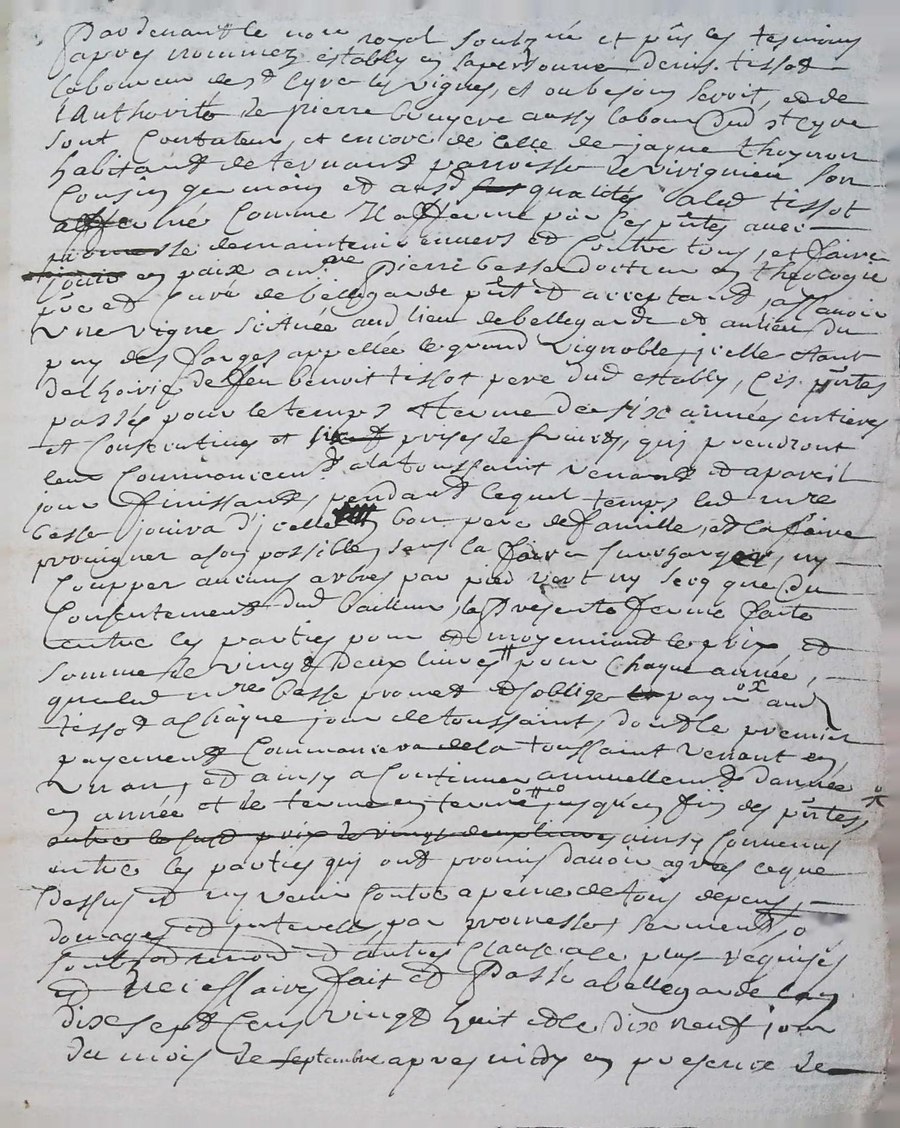 Pardevant le no.re royal soubz.né et p.ns les tesmoins
apres nommez estably en sa personne denis tissot
laboureur de st Cyre les vignes, et ou besoin seroit, et de
l'authorité de pierre bruyere aussy labour dud st Cyre
sont Curateur, et encore de celle de jaque thoynon
habitant de ternand parroesse de virignieu son
Cousin germain et ausd qualités led tissot
affermé Comme Il afferme par Ces p.ntes avec
promesse de maintenir envers et Contre tous, et faire
jouir en paix a m.re Pierre besse docteur en theologie
p.bre et Curé de bellegarde p.nt et acceptant, assavoir
Une Vigne scituée aud lieu de bellegarde et au lieu du
puy des farges appellée le grand Vignoble, jcelle etant
de lhoirie de feu benoit tissot pere dud estably, Ces p.ntes
passés pour le temps et terme de six années entieres
et Consecutives et prises de fruits, qui prendront
leur Commancem.t a la toussaint venant et a pareil
jour finissant, pendant lequel temps led m.re
besse jouira d'jcelle en bon pere de famille, et la faire
provigner a son possible, sens la faire surcharger, ny
Coupper aucuns arbres par pied vert ny secq que du
Consentement dud bailleur, la Presente ferme faite
entre les parties pour et moyennant le prix et
somme de vingt deux livres pour Chaque année,
que led m.re besse promet et soblige payer aud
tissot a Chaque jour de toussaint, dont le premier
payement Commancera de la toussaint venant en
Un an, et ainsy a Continuer annuellem.t d'année
en année et de terme en terme jusqu'en fin des p.ntes,
outre le susd prix de vingt deux livres ainsy Convenus
entre les parties qui ont promis davoir agrees ceque
dessus et ny venir Contre a peine de tous depens,
domages et interests par promesse, serment,
soub.on renon.on et autres Clauses de plus requises
et neccessaires fait et Passé a bellegarde l'an
dix Sept Cens Vingt huit et le dix neuf jour
du mois de septembre apres midy en presence de